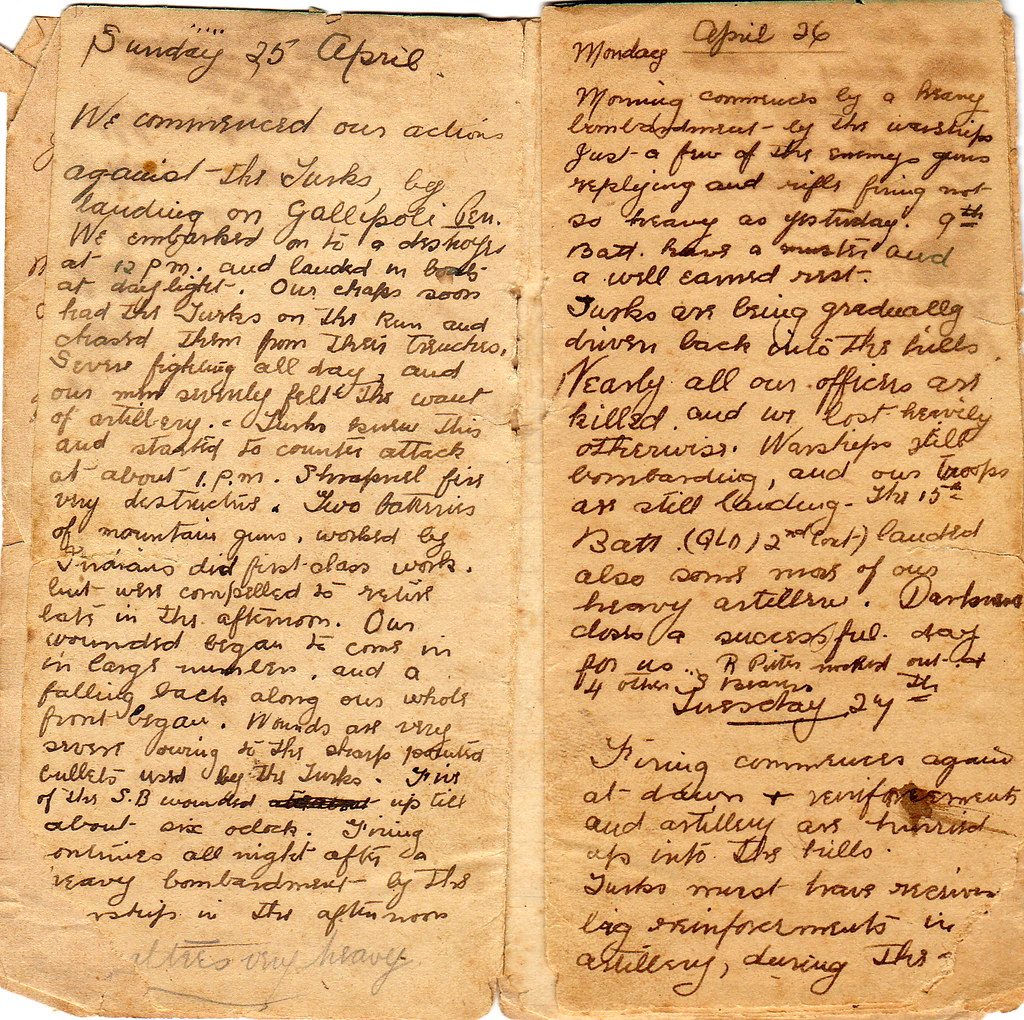 Sunday 25 April.
We commenced our actions
against the Turks, by
landing on Gallipoli Pen.
We embarked on to a destroyer
at 12 p.m. and landed in boats
at daylight. Our chaps soon
had the Turks on the run and
chased them from their trenches.
Severe fighting all day, and
our men severely felt the want
of artillery. Turks knew this
and started to counter attack
at about 1.p.m. Shrapnel fire
very destructive. Two batteries
of mountain guns, worked by
Indians did first-class work.
but were compelled to retire
late in the afternoon. Our
wounded began to come in
in large numbers, and a
falling back along our whole
front began. Wounds are very
severe owing to the sharp pointed
bullets used by the Turks. Five
of the S.B wounded up till
about six oclock. Firing
ontinues all night after a
eavy bombardment by the
rships in the afternoon
very heavy.
Monday April 26
Morning commences by a heavy
bombardment by the warships
Just a few of the enemys guns
replying and rifle firing not
so heavy as yesterday. 9th
Batt. have a muster and
a well earned rest.
Turks are being gradually
driven back into the hills.
Nearly all our officers are
killed and we lost heavily
otherwise. Warships still
bombarding, and our troops
are still landing. The 15th
Batt. (QLD) 2nd Cont) landed
also some more of our
heavy artillery. Darkness
closes a successful day
for us. R Pitts nocked out +
4 other S Bearers
Tuesday 27th
Firing commences again
at dawn + reinforcements
and artillery are hurried
up into the hills.
Turks must have receive
big reinforcements in
artillery, during the